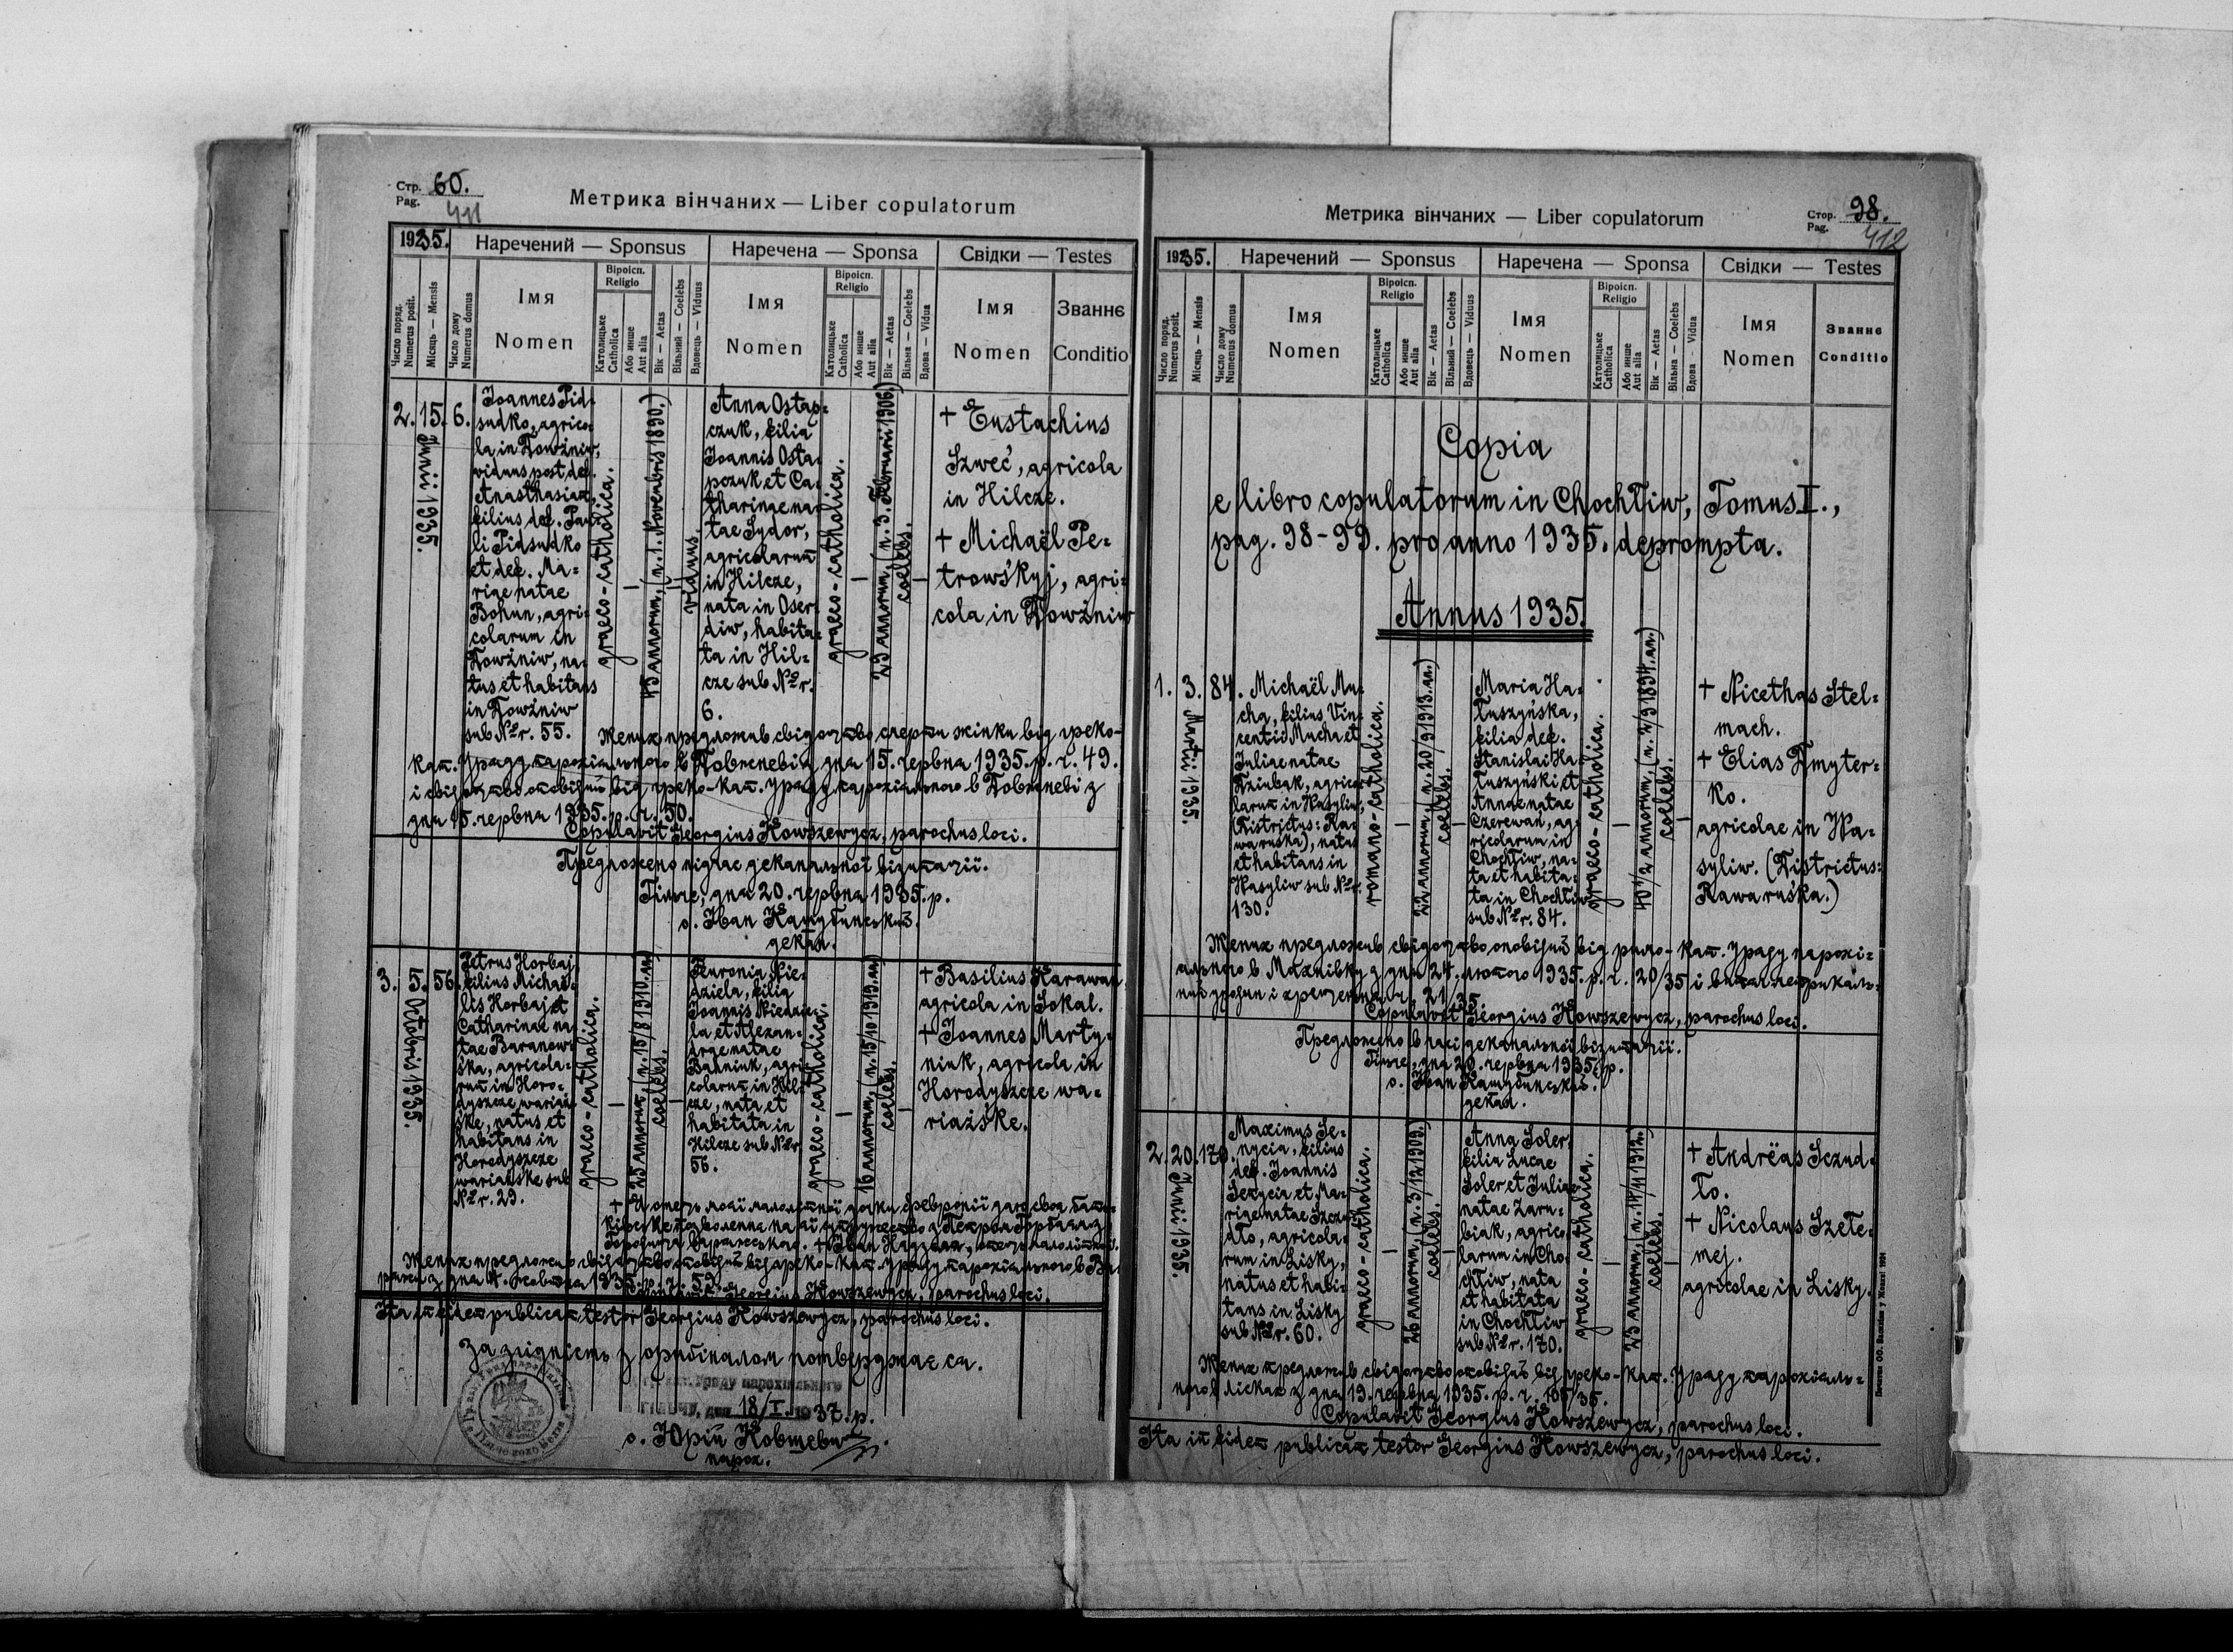 Стр. 60.
Pag.
411
Метрика вінчаних — Liber copulatorum
1935.
Наречений — Sponsus
Наречена — Sponsa
Свідки — Testes
Число поряд.
Numerus posit.
Місяць — Mensis
Число дому
Numerus domus
Імя
Nomen
Віроісп.
Religio
Католицьке
Catholica
Або инше
Aut alia
Вік — Aetas
Вільний — Coelebs
Вдовець — Viduus
Імя
Nomen
Віроісп.
Religio
Католицьке
Catholica
Або инше
Aut alia
Вік — Aetas
Вільна — Coelebs
Вдова — Vidua
Імя
Nomen
Званнє
Conditio
2.
15. Junii 1935.
6.
Joannes Pid-
sudko, agrico-
la in Dowżniw,
viduus post def.
Anasthasiam,
filius def. Pau-
li Pidsudko
et def. Ma-
riae natae
Bohun, agri-
colarum in
Dowżniw, na-
tus et habitans
in Dowżniw
sub Nr. 55.
graeco-catholica.
45 annorum, (n. 1. Novembris 1890.)
viduus.
Anna Ostap-
czuk, filia
Joannis Osta-
pczuk et Ca-
tharinae na-
tae Sydor,
agricolarum
in Hilcze,
nata in Oser-
diw, habita-
ta in Hil-
cze sub Nr.
6.
graeco-catholica.
29 annorum, (n. 3. Februarii 1906.)
coelebs.
+ Eustachius
Szweć, agricola
in Hilcze.
+ Michaël Pe-
trowśkyj, agri-
cola in Dowżniw
Жених предложив свідоцтво смерти жінки від греко-
кат. Уряду парохіяльного в Довжневі з дня 15. червня 1935. р. ч. 49.
і свідоцтво оповідий від греко-кат. Уряду парохіяльного в Довжневі з
дня 15. червня 1935. р. ч. 50.
Copulavit Georgius Kowszewycz, parochus loci.
Предложено підчас деканальної візитації.
Гільче, дня 20. червня 1935. р.
о. Іван
декан.
3.
5. Octobris 1935.
56.
Petrus Horbaj,
filius Michaë-
lis Horbaj et
Catharinae na-
tae Baranow-
śka, agricola-
rum in Horo-
dyszcze wariaż-
śke, natus et
habitans in
Horodyszcze
wariażśke sub
Nr. 29.
graeco-catholica.
25 annorum, (n. 15/8 1910. an)
coelebs.
Feuronia Nie-
dziela, filia
Joannis Niedzie-
la et Alexan-
drae natae
Bahniuk, agri-
colarum in Hil-
cze, nata et
habitata in
Hilcze sub Nr.
56.
graeco-catholica.
16 annorum, (n. 15/10 1919. an)
coelebs.
+ Basilius Karawan
agricola in Sokal.
+ Joannes Marty-
niuk, agricola in
Horodyszcze wa-
riażśke.
+ Я отець моєї малолітної дочки Февронії даю своє бать-
ківське позволення на її супружество з Петром Горбаєм з
Городища Варяжського. + Іван Недзеля, отець малолітної.
Жених предложив свідоцтво оповідий від греко-кат. Уряду парохіяльного в Ва-
ряжі з дня 4. жовтня 1935. р. ч. 59.
Georgius Kowszewycz, parochus loci.
Ita in fidem publicam testor Georgius Kowszewycz, parochus loci.
За згідність з оригіналом потверджається.
Уряду парохіяльного
дня 18/I. 1937. р.
о. Юрій Ковшевич
парох.
Метрика вінчаних — Liber copulatorum
Стор. 98.
Pag.
412
1935.
Наречений — Sponsus
Наречена — Sponsa
Свідки — Testes
Число поряд.
Numerus posit.
Місяць — Mensis
Число дому
Numenus domus
Імя
Nomen
Віроісп.
Religio
Католицьке
Catholica
Або инше
Aut alia
Вік — Aetas
Вільний — Coelebs
Вдовець — Viduus
Імя
Nomen
Віроісп.
Religio
Католицьке
Catholica
Або инше
Aut alia
Вік — Aetas
Вільна — Coelebs
Вдова — Vidua
Імя
Nomen
Званнє
Conditio
Copia
e libro copulatorum in Chochłiw, Tomus I.,
pag. 98-99. pro anno 1935. deprompta.
Annus 1935.
1.
3. Martii 1935.
84.
Michaël Mu-
cha, filius Vin-
centii Mucha et
Juliae natae
Dziubak, agrico-
larum in Wasyliw,
(Districtus: Ra-
wa ruska), natus
et habitans in
Wasyliw sub Nr.
130.
romano-catholica.
22 annorum, (n. 20/9 1913. an)
coelebs.
Maria Ha-
łuszyńska,
filia def.
Stanislai Ha-
łuszyński et
Annae natae
Czerewan, ag-
ricolarum in
Chochłiw, na-
ta et habita-
ta in Chochłiw
sub Nr. 84.
graeco-catholica.
40 1/2 annorum, (n. 4/9 1894. an)
coelebs.
+ Nicethas Stel-
mach.
+ Elias Dmyter-
ko.
agricolae in Wa-
syliw. (Districtus:
Rawa ruśka.)
Жених предложив свідоцтво оповідий від римо-кат. Уряду парохі-
яльного в Махнівку з дня 24. лютого 1935. р. ч. 20/35 і витяг метрикаль-
ний уродин і хрещення ч. 21/35.
Copulavit Georgius Kowszewycz, parochus loci.
Предложено в часі деканальної візитації.
Гільче, дня 20. червня 1935. р.
о. Іван
декан.
2.
20. Junii 1935.
170.
Maximus Se-
nycia, filius
def. Joannis
Senycia et Ma-
riae natae Szczu-
dło, agricola-
rum in Lisky,
natus et habi-
tans in Lisky
sub Nr. 60.
graeco-catholica.
26 annorum, (n. 3/12 1909.)
coelebs.
Anna Soler,
filia Lucae
Soler et Juliae
natae Zaru-
biak, agrico-
larum in Cho-
chłiw, nata
et habitata
in Chochłiw
sub Nr. 170.
graeco-catholica.
23 annorum, (n. 14/11 1912.)
coelebs.
+ Andrëas Sczud-
ło.
+ Nicolaus Szete-
mej.
agricolae in Lisky.
Жених предложив свідоцтво оповідий від греко-кат. Уряду парохіяль-
ного в Лісках з дня 19. червня 1935. р. ч. 105/35.
Copulavit Georgius Kowszewycz, parochus loci.
Ita in fidem publicam testor Georgius Kowszewycz, parochus loci.
Печатня ОО. Василіян у Жовкві 1934